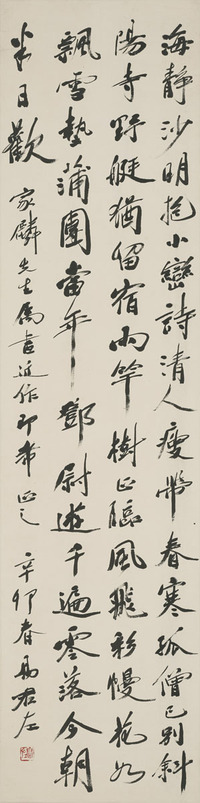 海靜沙明抱小巒詩清人瘦帶春寒孤僧已別斜
陽寺野艇猶留宿雨竿樹正臨風飛彩幔花如
飄雪墊蒲團當年鄧尉遊千遍零落今朝
半日歡
家麟先生屬書近作即希正之 辛卯春 易君左